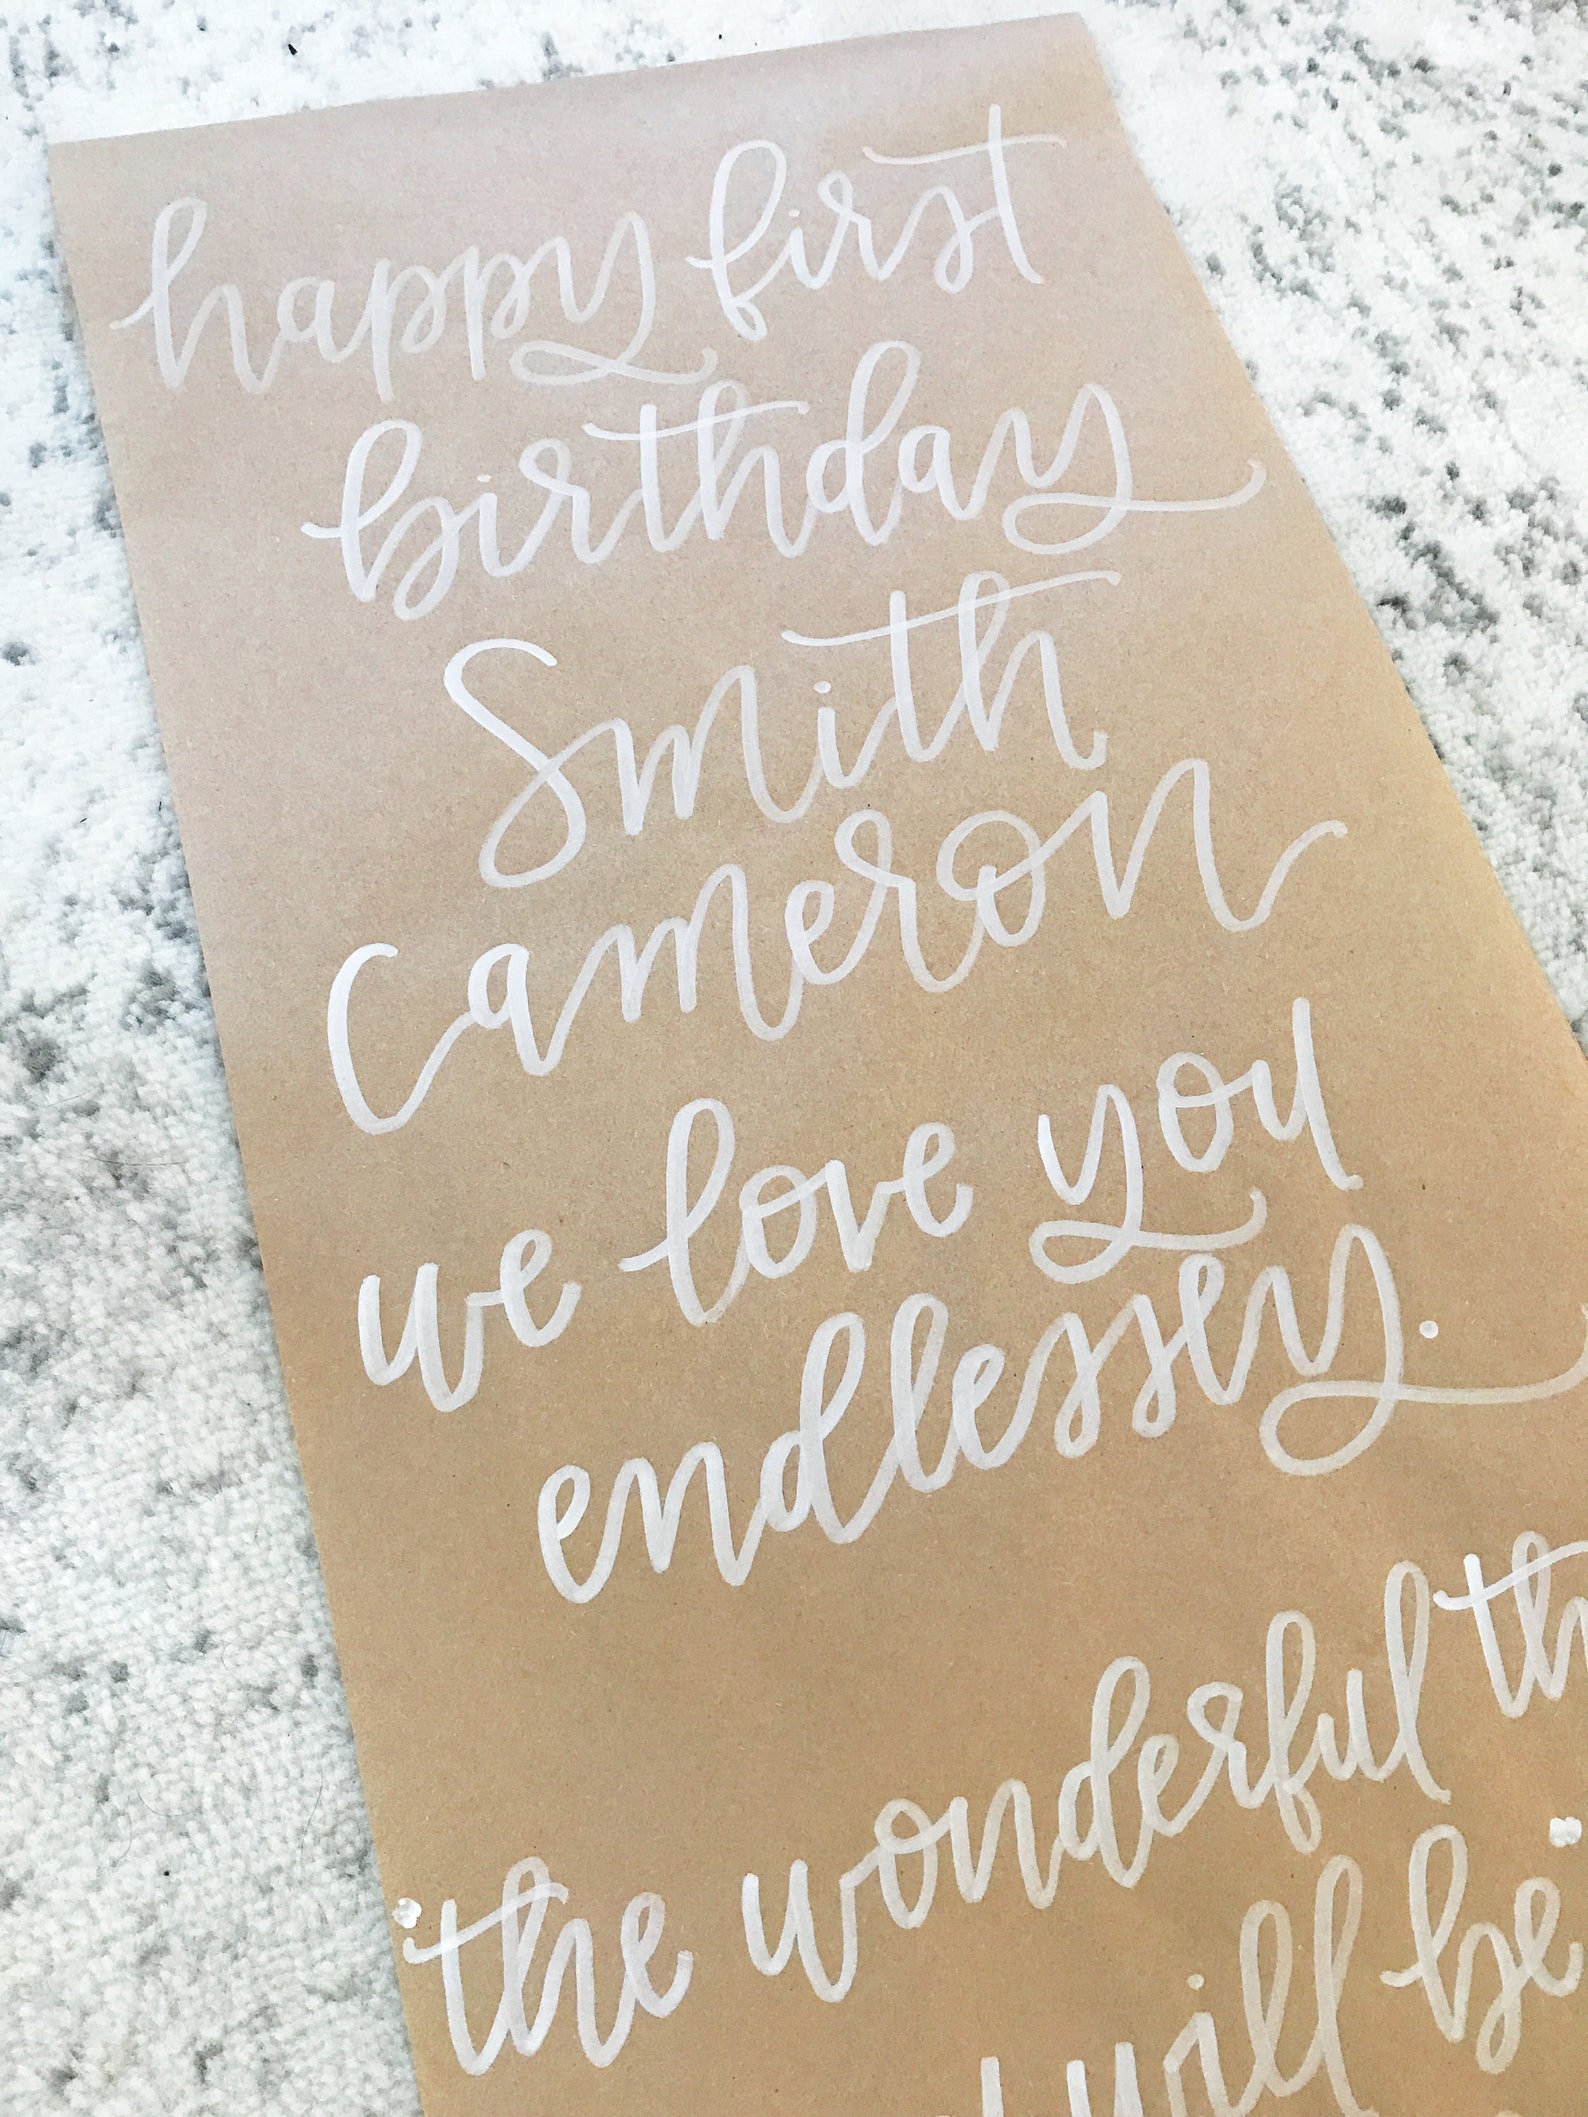 happy first
birthday
Smith
Cameron
we love you
endlessey.
"the wonderful
will be"